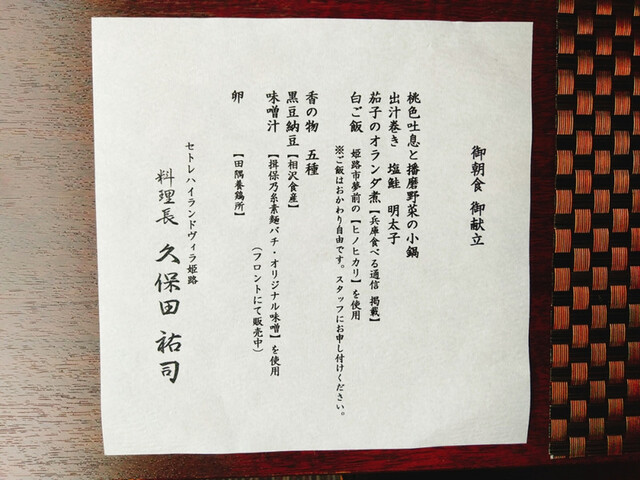 御朝食 御献立
桃色吐息と播磨野菜の小鍋
出汁巻き 塩鮭 明太子
茄子のオランダ煮【兵庫食べる通信 掲載】
白ご飯 姫路市夢前の【ヒノヒカリ】を使用
※ご飯はおかわり自由です。スタッフにお申し付けください。
香の物 五種
黒豆納豆【相沢食産】
味噌汁【揖保乃糸素麺バチ・オリジナル味噌】を使用
(フロントにて販売中)
卵 【田隅養鶏所】
セトレハイランドヴィラ姫路
料理長 久保田 祐司